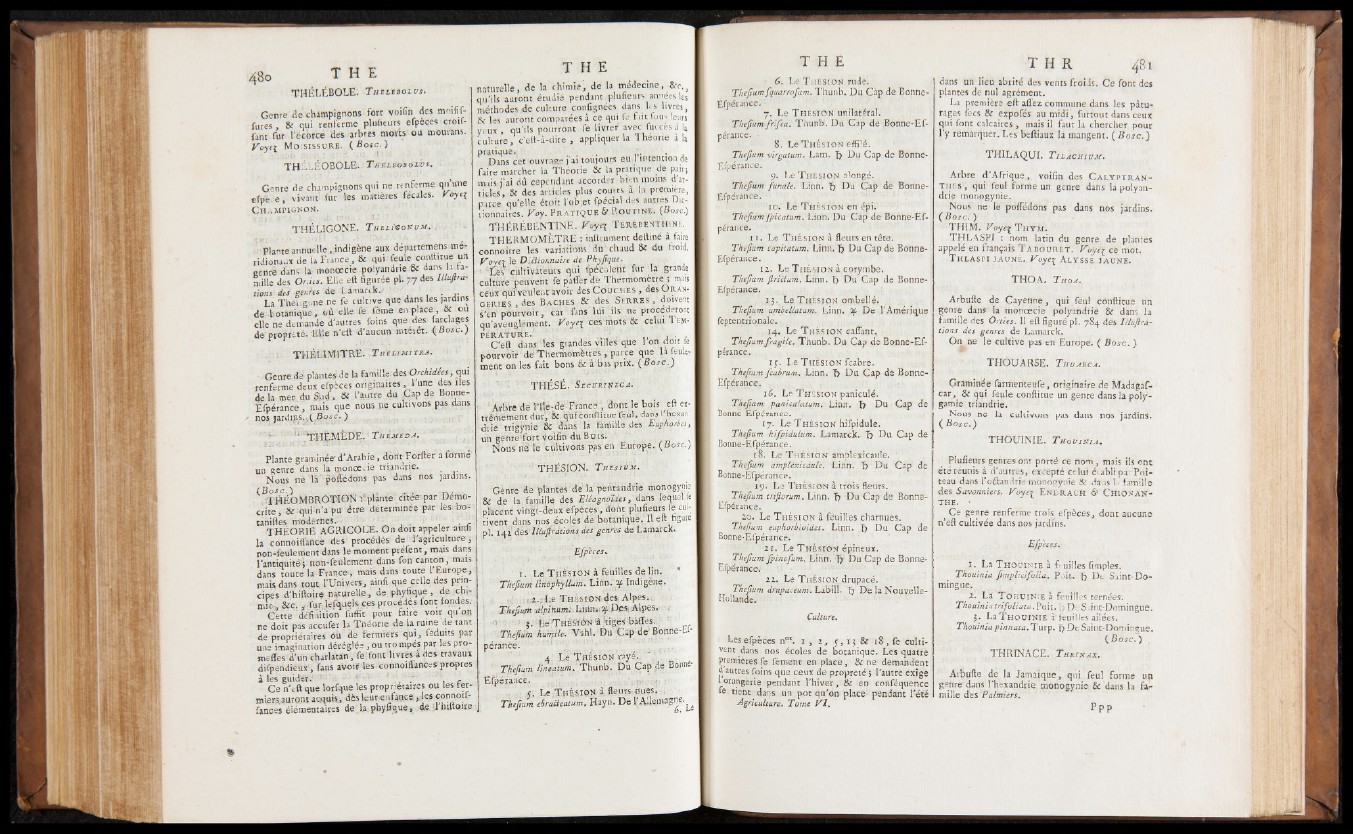 480
T H E
THÉLÉBOLE. THELEBOLUS.
Genre de champignons fort voisin des moisis-
sures, & qui renferme plusieurs espèces crois-
sant sur l'écorce des arbres morts ou mourans.
Voyez MOISISSURE. (Bosc.)
THÉLÉOBOLE. THELEOBOLUS.
Genre de champignons qui ne renferme qu'une
espèce, vivant sur les matières fécales. Voyez
CHAMPIGNON.
THÉLIGONE. THELIGONUM.
Plante annuelle, indigène aux départemens mé-
ridionaux de la France, & qui seule constitue un
genre dans la monœcie polyandrie & dans la fa-
mille des Orties. Elle est figurée pl. 77 des Illustra-
tions des genres de Lamarck.
La Théligone ne se cultive que dans les jardins
de botanique, où elle se sème en place, & où
elle ne demande d'autres soins que des sarclages
de propreté. Elle n'est d'aucun intérêt. (Bosc.)
THÉLIMITRE. THELIMITRA.
Genre de plantes de la famille des Orchidées, qui
renferme deux espèces originaires, l'une des îles
de la mer du Sud, & l'autre du Cap de Bonne-
Espérance, mais que nous ne cultivons pas dans
nos jardins. (Bosc.)
THEMÈDE. THEMEDA.
Plante graminée d'Arabie, dont Forster a formé
un genre dans la monœcie triandrie.
Nous ne la possédons pas dans nos jardins.
(Bosc.)
THÉOMBROTION : plante citée par Démo-
crite, & qui n'a pu être déterminée par les bo-
tanistes modernes.
THÉORIE AGRICOLE. On doit appeler ainsi
la connoissance des procédés de l'agriculture,
non-seulement dans le moment présent, mais dans
l'antiquité; non-seulement dans son canton, mais
dans toute la France, mais dans toute l'Europe,
mais dans tout l'Univers, ainsi que celle des prin-
cipes d'histoire naturelle, de physique, de chi-
mie, &c., sur lesquels ces procédés sont fondés.
Cette définition suffit pour faire voir qu'on
ne doit pas accuser la Théorie de la ruine de tant
de propriétaires ou de fermiers qui, séduits par
une imagination déréglée, ou trompés par les pro-
messes d'un charlatan, se sont livrés à des travaux
dispendieux, sans avoir les connoissances propres
à les guider.
Ce n'est que lorsque les propriétaires ou les fer-
miers auront acquis, dès leur enfance, les connois-
sances élémentaires de la physique, de l'histoire
T H E
naturelle, de la chimie, de la médecine, &c.,
qu'ils auront étudié pendant plusieurs années les
méthodes de culture consignées dans les livres,
& les auront comparées à ce qui se fait sous leurs
yeux, qu'ils pourront se livrer avec succès à la
culture, c'est-à-dire, appliquer la Théorie à la
pratique.
Dans cet ouvrage j'ai toujours eu l'intention de
faire marcher la Théorie & la pratique de pair;
mais j'ai dû cependant accorder bien moins d'ar-
ticles, & des articles plus courts à la première,
parce qu'elle étoit l'objet spécial des autres Dic-
tionnaires. Voy. PRATIQUE & ROUTINE. (Bosc.)
THÉRÉBENTINE. Voyez TÉRÉBENTHINE.
THERMOMÈTRE : instrument destiné à faire
connoître les variations du chaud & du froid.
Voyez le Dictionnaire de Physique.
Les cultivateurs qui spéculent sur la grande
culture peuvent se passer de Thermomètre; mais
ceux qui veulent avoir des COUCHES, des ORAN-
GERIES, des BACHES & des SERRES, doivent
s'en pourvoir, car sans lui ils ne procéderont
qu'aveuglément. Voyez ces mots & celui TEM-
PÉRATURE.
C'est dans les grandes villes que l'on doit se
pourvoir de Thermomètres, parce que là seule-
ment on les fait bons & à bas prix. (Bosc.)
THÉSÉ. SECURINEGA.
Arbre de l'île-de-France, dont le bois est ex-
trêmement dur, & qui constitue seul, dans l'hexan-
drie trigynie & dans la famille des Euphorbes,
un genre fort voisin du Buis.
Nous ne le cultivons pas en Europe. (Bosc.)
THÉSION. THESIUM.
Genre de plantes de la pentandrie monogynie
& de la famille des Eléagnoïdes, dans lequel se
placent vingt-deux espèces, dont plusieurs se cul-
tivent dans nos écoles de botanique. Il est figuré
pl. 142 des Illustrations des genres de Lamarck.
Espèces.
1. Le THÉSION à feuilles de lin.
Thesium linophyllum. Linn. ♃ Indigène.
2. Le THÉSION des Alpes.
Thesium alpinum. Linn. ♃ Des Alpes.
3. Le THÉSION à tiges basses.
Thesium humile. Vahl. Du Cap de Bonne-Es-
pérance.
4. Le THÉSION rayé.
Thesium lineatum. Thunb. Du Cap de Bonne-
Espérance.
5. Le THÉSION à fleurs nues.
Thesium ebracteatum. Hayn. De l'Allemagne.
6. Le
T H E
6. Le THÉSION rude.
Thesium squarrosum. Thunb. Du Cap de Bonne-
Espérance.
7. Le THÉSION unilatéral.
Thesium frisea. Thunb. Du Cap de Bonne-Es-
pérance.
8. Le THÉSION effilé.
Thesium virgatum. Lam. ♄ Du Cap de Bonne-
Espérance.
9. Le THÉSION alongé.
Thesium funale. Linn. ♄ Du Cap de Bonne-
Espérance.
10. Le THÉSION en épi.
Thesium spicatum. Linn. Du Cap de Bonne-Es-
pérance.
11. Le THÉSION à fleurs en tête.
Thesium capitatum. Linn. ♄ Du Cap de Bonne-
Espérance.
12. Le THÉSION à corymbe.
Thesium strictum. Linn. ♄ Du Cap de Bonne-
Espérance.
13. Le THÉSION ombellé.
Thesium umbellatum. Linn. ♃ De l'Amérique
septentrionale.
14. Le THÉSION cassant.
Thesium fragile. Thunb. Du Cap de Bonne-Es-
pérance.
15. Le THÉSION scabre.
Thesium scabrum. Linn. ♄ Du Cap de Bonne-
Espérance.
16. Le THÉSION paniculé.
Thesium paniculatum. Linn. ♄ Du Cap de
Bonne-Espérance.
17. Le THÉSION hispidule.
Thesium hispidulum. Lamarck. ♄ Du Cap de
Bonne-Espérance.
18. Le THÉSION amplexicaule.
Thesium amplexicaule. Linn. ♄ Du Cap de
Bonne-Espérance.
19. Le THÉSION à trois fleurs.
Thesium triflorum. Linn. ♄ Du Cap de Bonne-
Espérance.
20. Le THÉSION à feuilles charnues.
Thesium euphorbioides. Linn. ♄ Du Cap de
Bonne-Espérance.
21. Le THÉSION épineux.
Thesium spinosum. Linn. ♄ Du Cap de Bonne-
Espérance.
22. Le THÉSION drupacé.
Thesium drupaceum. Labill. ♄ De la Nouvelle-
Hollande.
Culture.
Les espèces nos. 1, 2, 5, 13 & 18, se culti-
vent dans nos écoles de botanique. Les quatre
premières se sèment en place, & ne demandent
d'autres soins que ceux de propreté; l'autre exige
l'orangerie pendant l'hiver, & en conséquence
se tient dans un pot qu'on place pendant l'été
Agriculture. Tome VI.
T H R
481
dans un lieu abrité des vents froids. Ce sont des
plantes de nul agrément.
La première est assez commune dans les pâtu-
rages secs & exposés au midi, surtout dans ceux
qui sont calcaires, mais il faut la chercher pour
l'y remarquer. Les bestiaux la mangent. (Bosc.)
THILAQUI. TILACHIUM.
Arbre d'Afrique, voisin des CALYPTRAN-
THES, qui seul forme un genre dans la polyan-
drie monogynie.
Nous ne le possédons pas dans nos jardins.
(Bosc.)
THIM. Voyez THYM.
THLASPI : nom latin du genre de plantes
appelé en français TABOURET. Voyez ce mot.
THLASPI JAUNE. Voyez ALYSSE JAUNE.
THOA. THOA.
Arbuste de Cayenne, qui seul constitue un
genre dans la monœcie polyandrie & dans la
famille des Orties. Il est figuré pl. 784 des Illustra-
tions des genres de Lamarck.
On ne le cultive pas en Europe. (Bosc.)
THOUARSE. THUARCA.
Graminée sarmenteuse, originaire de Madagas-
car, & qui seule constitue un genre dans la poly-
gamie triandrie.
Nous ne la cultivons pas dans nos jardins.
(Bosc.)
THOUINIE. THOUINIA.
Plusieurs genres ont porté ce nom, mais ils ont
été réunis à d'autres, excepté celui établi par Poi-
teau dans l'octandrie monogynie & dans la famille
des Savonniers. Voyez ENDRACH & CHIONAN-
THE.
Ce genre renferme trois espèces, dont aucune
n'est cultivée dans nos jardins.
Espèces.
1. La THOUINIE à feuilles simples.
Thouinia simplicifolia. Poit. ♄ De Saint-Do-
mingue.
2. La THOUINIE à feuilles ternées.
Thouinia trifoliata. Poit. ♄ De Saint-Domingue.
3. La THOUINIE à feuilles ailées.
Thouinia pinnata. Turp. ♄ De Saint-Domingue.
(Bosc.)
THRINACE. THRINAX.
Arbuste de la Jamaïque, qui seul forme un
genre dans l'hexandrie monogynie & dans la fa-
mille des Palmiers.
P p p